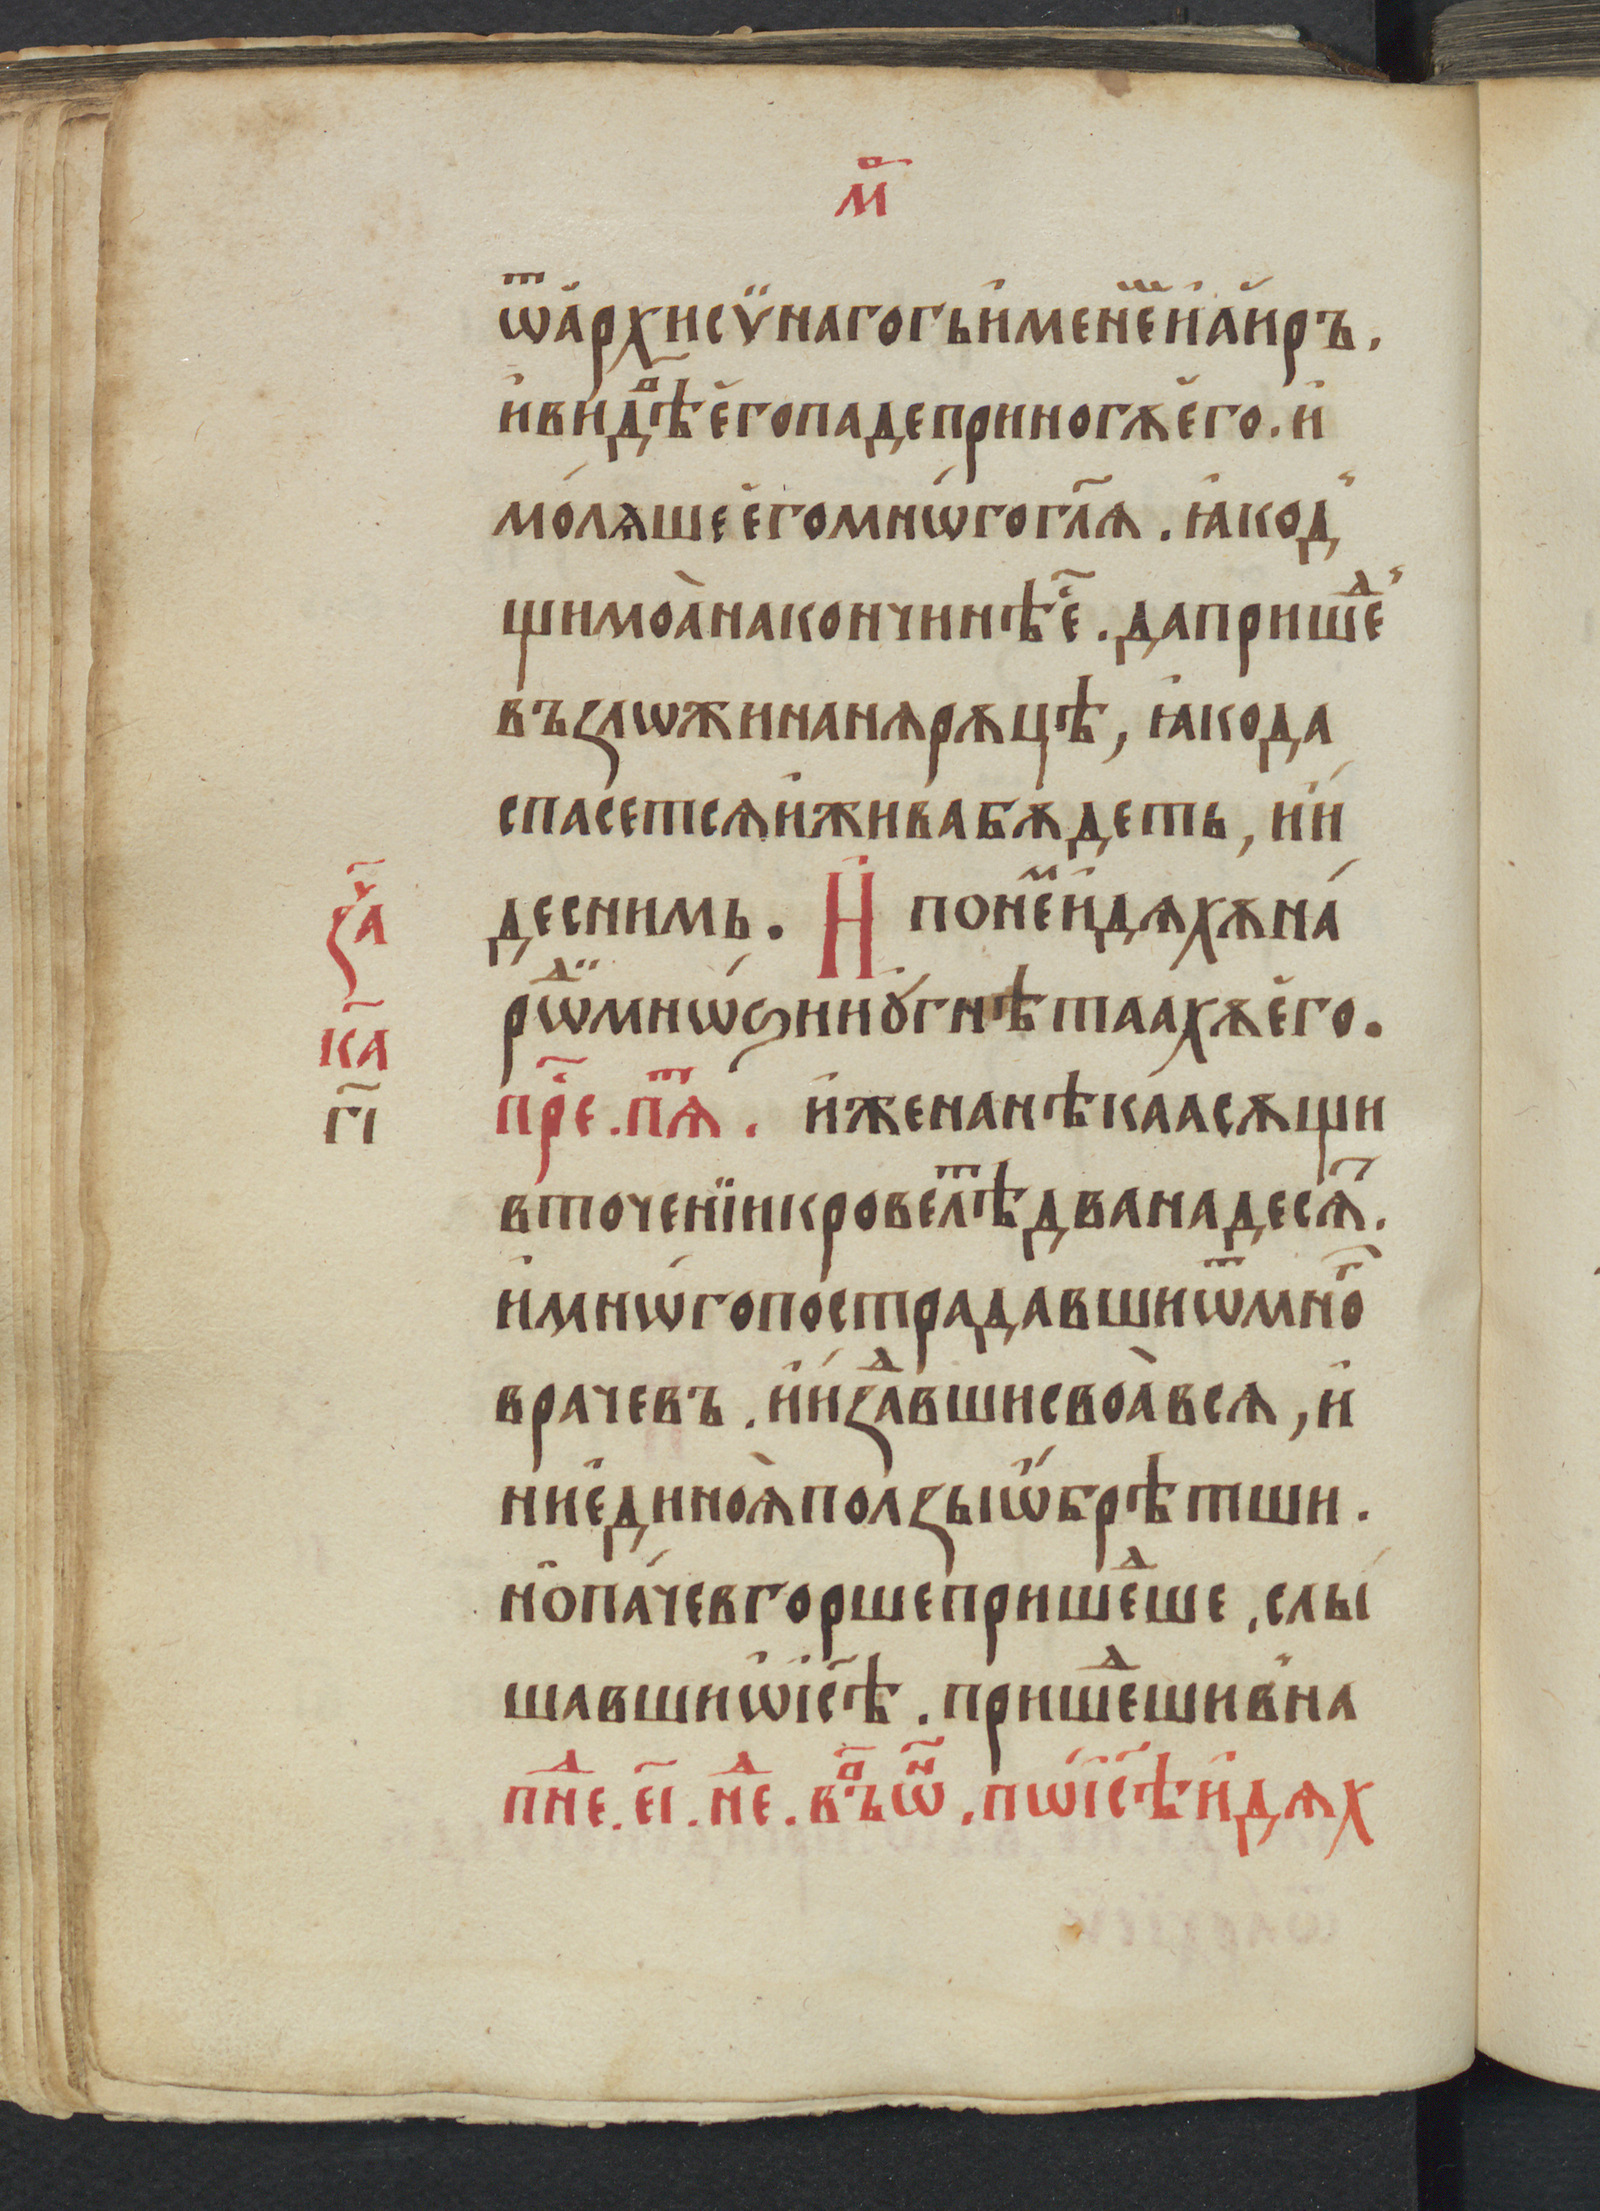 м҃
ѿархисѵнагогьименеⷨиаиръ.
ивидⷡѣегопадеприногѫего.и
молѧшеегомнѡгогл҃ѧ.ꙗкод
щимоанакончинѣе҃.дапришеⷣ
възлѡжинанѧрѫцѣ, ꙗкода
спасетсѧиживабѫдеть, ии
деснимь. И понеⷨидѧхѫна
рѡⷣмнѡѕииꙋгнѣтаахѫего.
за҃
ка҃
гі҃
прⷭ҇е.пѧⷮ. иженанѣкаасѫщи
вточенїикровелⷮѣдванадесѧⷮ.
имнѡгопострадавшиѿмноⷢ
врачевъ. иизⷣавшисвоавсѧ, и
ниединоѧползыѡбрѣтши.
нопачевгоршепришеⷣше, слы
шавшиѡіс҃ѣ. пришеⷣшивна
пнⷣе.еі҃.нⷣе.вⷪ҇ъѡⷩ҇.пѡіс҃ѣидѧх